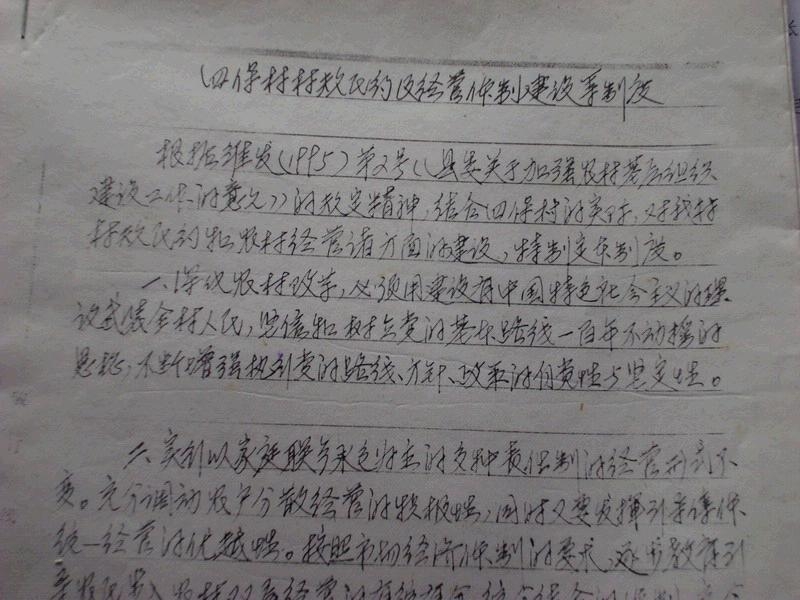 四保村村规民约及经营体制建设等制度
根据维发(1995)第2号《县委关于加强农村基层组织
建设工作的意见》的规定精神,结合四保村的实际,对我村
村规民约和农村经营诸方面的建设,特制定本制度。
一、深化农村改革,必须用建设有中国特色社会主义的理
论武装全村人民,坚信和树立党的基本路线一百年不动摇的
思想,不断增强执行党的路线、方针、政策的自觉性与坚定性。
二、实行以家庭联产承包为主的多种责任制的经营形式不
变。充分调动农户分散经营的积极性,同时又要发挥引导集体
统一经营的优越性。按照市场经济体制的要求,逐步教育引
农村双层经营的